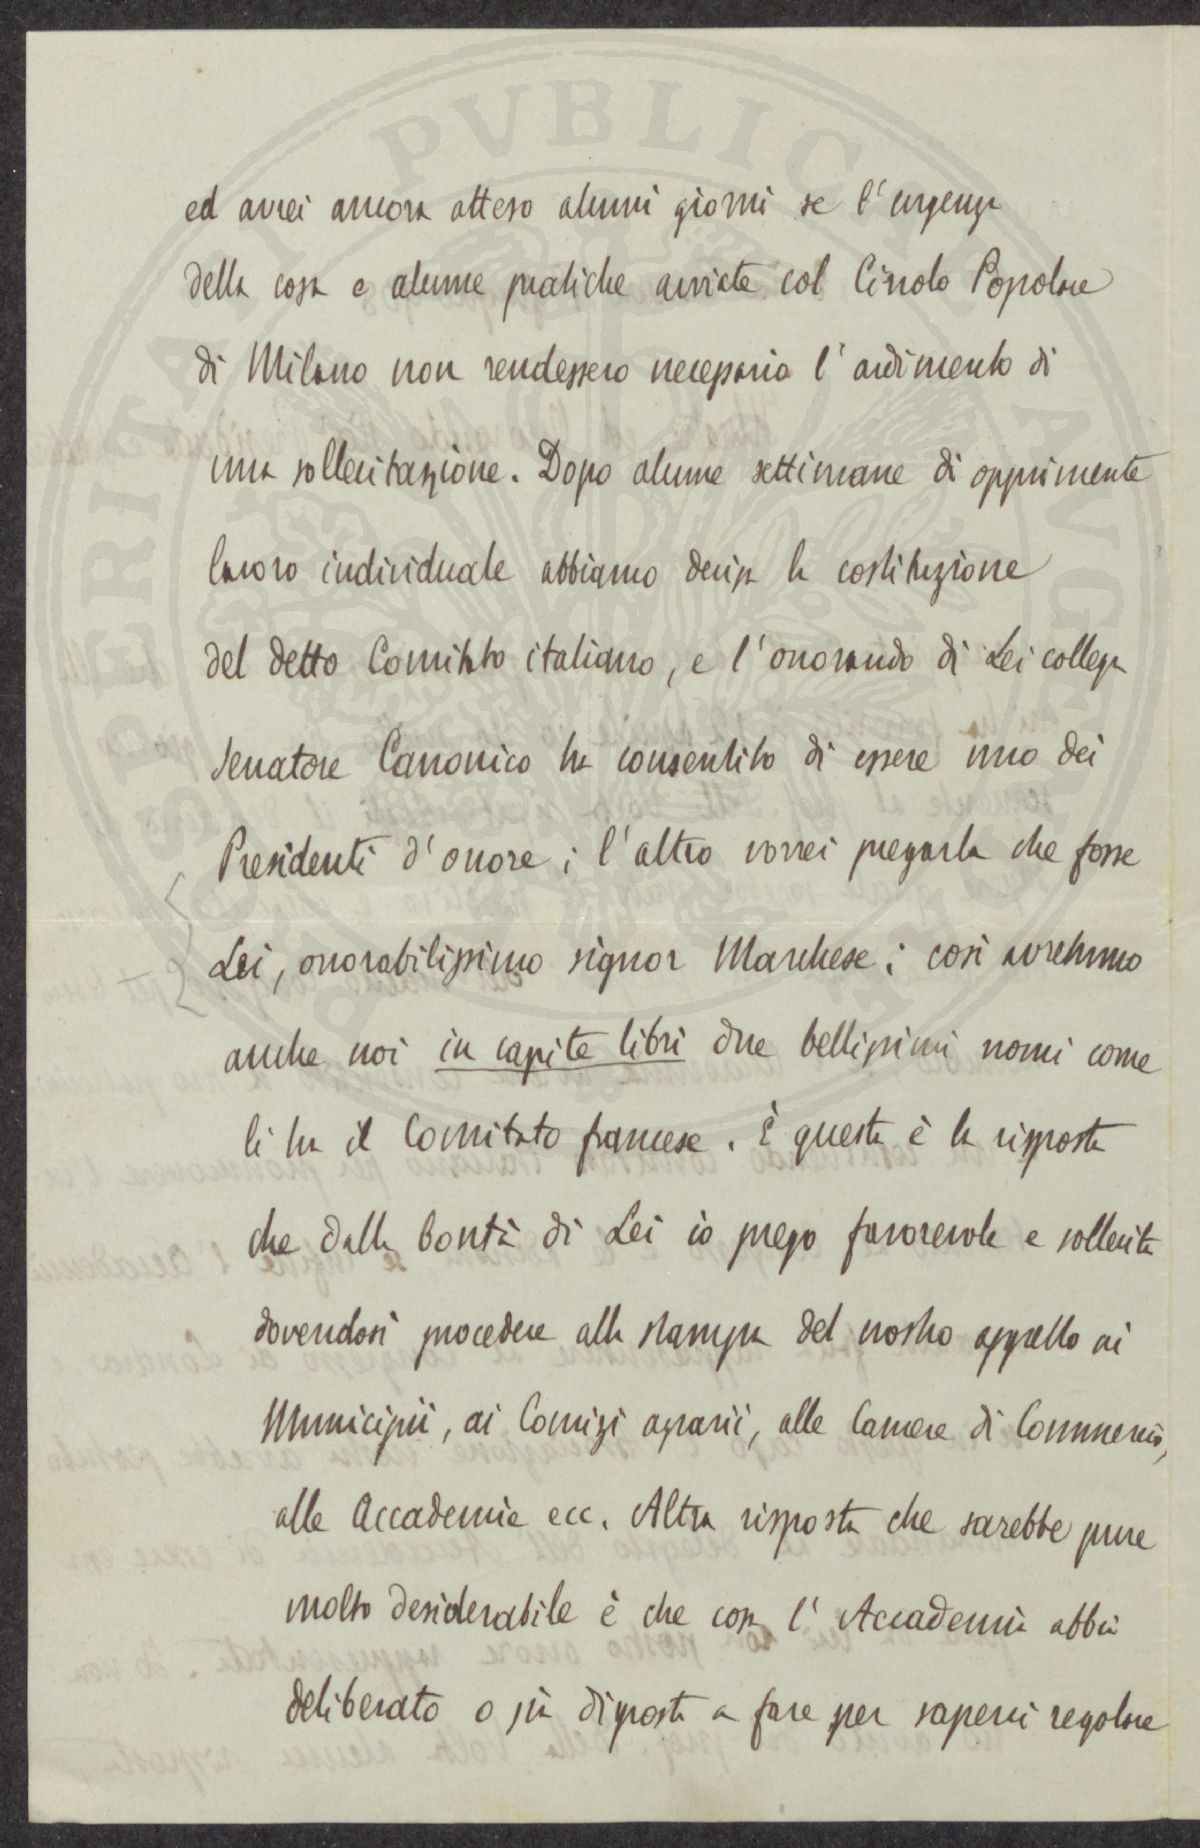 ed avrei ancora atteso alcuni giorni se l'urgenza
della cosa e alcune pratiche avviate col Circolo Popolare
di Milano non rendessero necessario l'ardimento di
una sollecitazione. Dopo alcune settimane di opprimente
lavoro individuale abbiamo decisa la costituzione
del detto Comitato italiano, e l'onorando di Lei collega
Senatore Canonico ha consentito di essere uno dei
Presidenti d'onore; l'altro vorrei pregarla che fosse
Lei, onorabilissimo signor Marchese; così avremmo
anche noi in capite libri due bellissimi nomi come
li ha il Comitato francese. E questa è la risposta
che dalla bontà di Lei io prego favorevole e sollecita
dovendosi procedere alla stampa del nostro appello ai
Municipii, ai Comizi agrarii, alle Camere di Commercio,
alle Accademie ecc. Altra risposta che sarebbe pure
molto desiderabile è che cosa l'Accademia abbia
deliberato o sia disposta a fare per saperci regolare